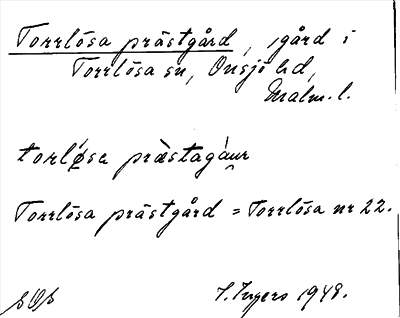 Torrlösa prästgård, gård i
Torrlösa sn, Onsjö hd,
Malm. l.
torløsa præstagaur
Torrlösa prästgård = Torrlösa nr 22.
1948.